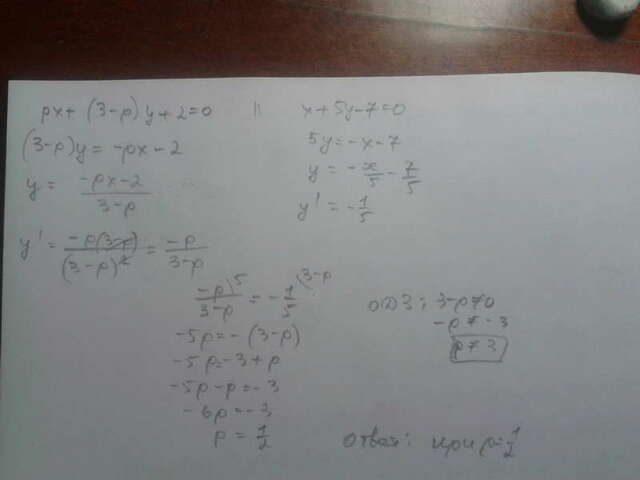 px + (3-p)y + 2 = 0 || x + 5y - 7 = 0
(3-p)y = -px - 2
y = \frac{-px-2}{3-p}
y' = \frac{-p(3-p)}{(3-p)^2} = \frac{-p}{3-p}
5y = -x - 7
y = -\frac{x}{5} - \frac{7}{5}
y' = -\frac{1}{5}
\frac{-p}{3-p} \5 = -\frac{1}{5} \3-p
-5p = -(3-p)
-5p = -3 + p
-5p - p = -3
-6p = -3
p = \frac{1}{2}
ОДЗ: 3-p ≠ 0
-p ≠ -3
p ≠ 3
Ответ: при p = \frac{1}{2}